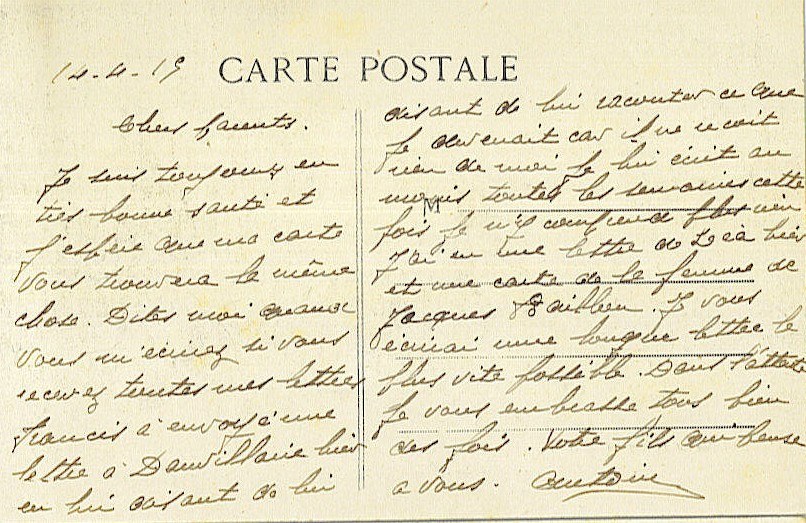 14-4-19 CARTE POSTALE
Chers parents.
Je suis toujours en
très bonne santé et
j'espère que ma carte
vous trouvera le même
chose. Dites moi quand
vous m'écrirez si vous
recevez toutes mes lettres
Francis à envoyé à une
lettre à Danvillaire hier
en lui disant de lui
disant de lui raconter ce que
je devenait car il ne recoit
rien de moi je lui écrit au
moins toutes les semaines cette
M
fois je n'y comprend plus rien
J'ai eu une lettre de Léa hier
et une carte de la femme de
Jacques. Je vous
écrirai une longue lettre le
plus vite possible. Dans l'attente
je vous embrasse tous bien
des fois. Votre fils qui pense
a vous. Antoin